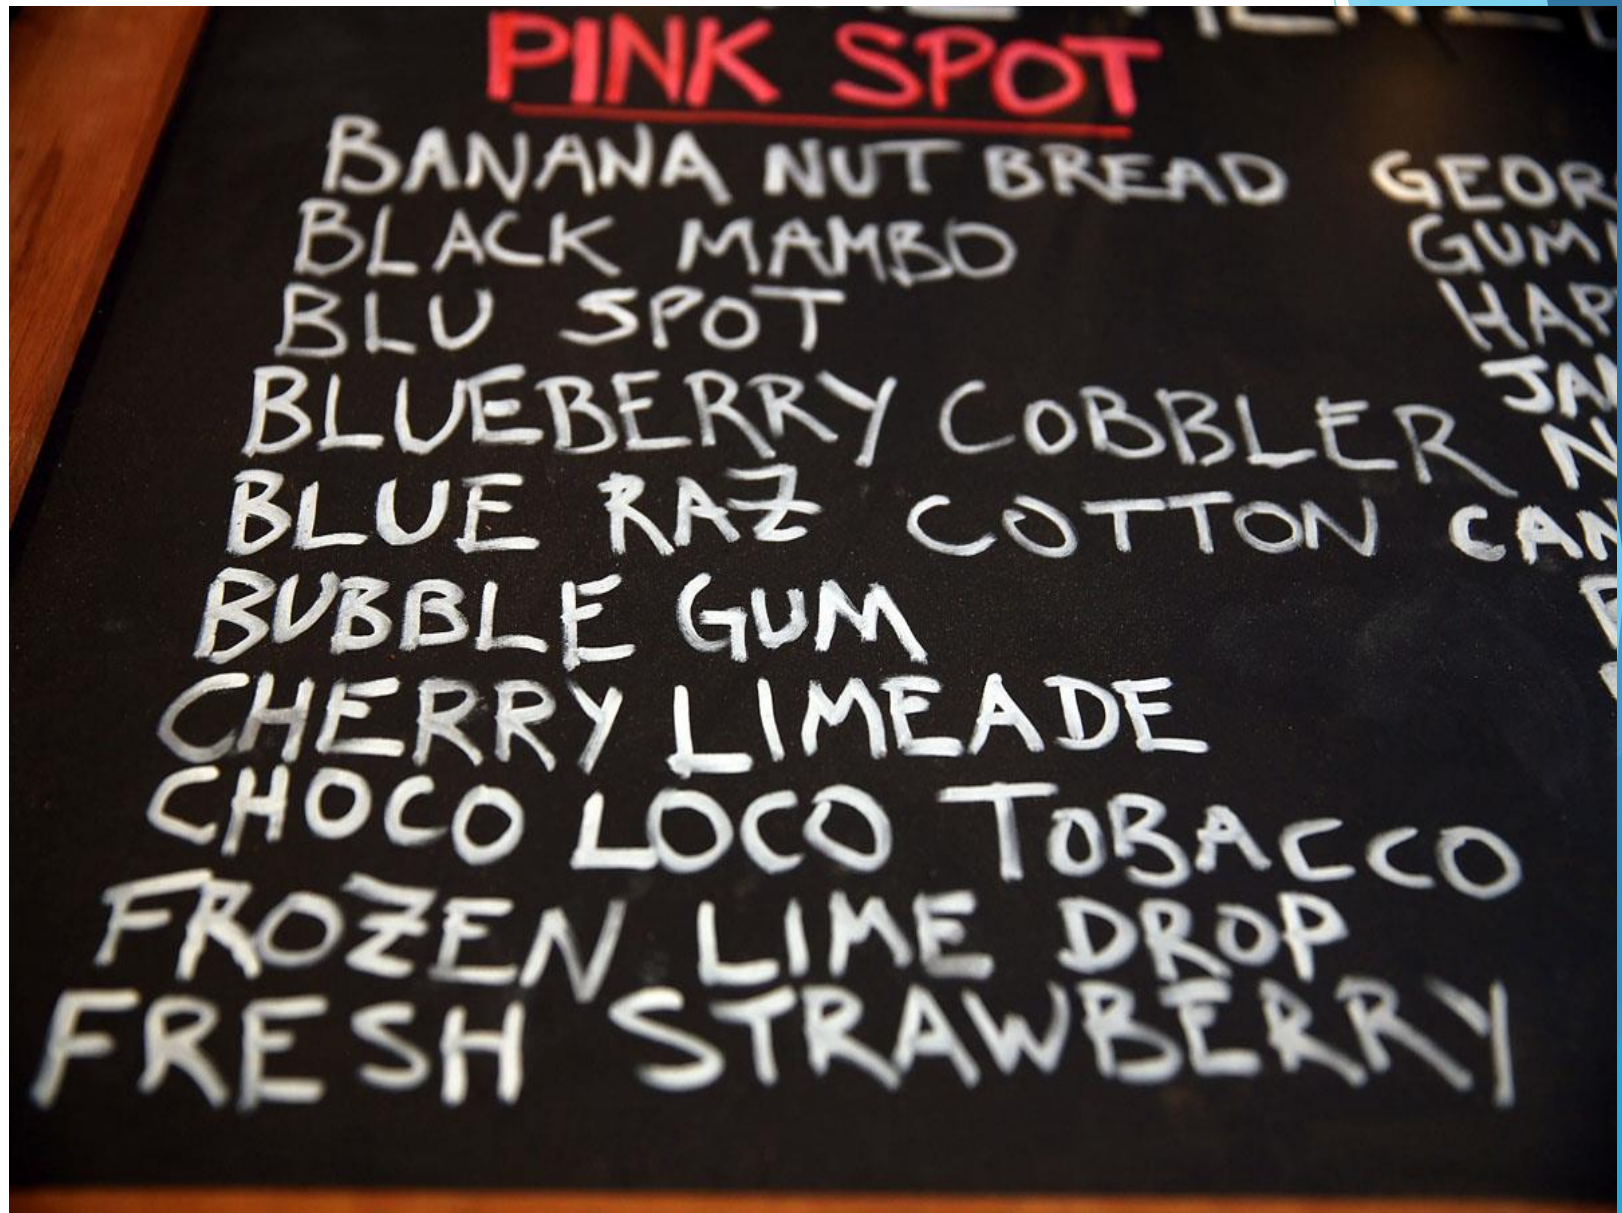 PINK SPOT
BANANA NUT BREAD
BLACK MAMBO
BLU SPOT
BLUEBERRY COBBLER
BLUE RAZ COTTON CAN
BUBBLE GUM
CHERRY LIMEADE
CHOCO LOCO TOBACCO
FROZEN LIME DROP
FRESH STRAWBERRY
GEOR
GUM
HAP
JA
N